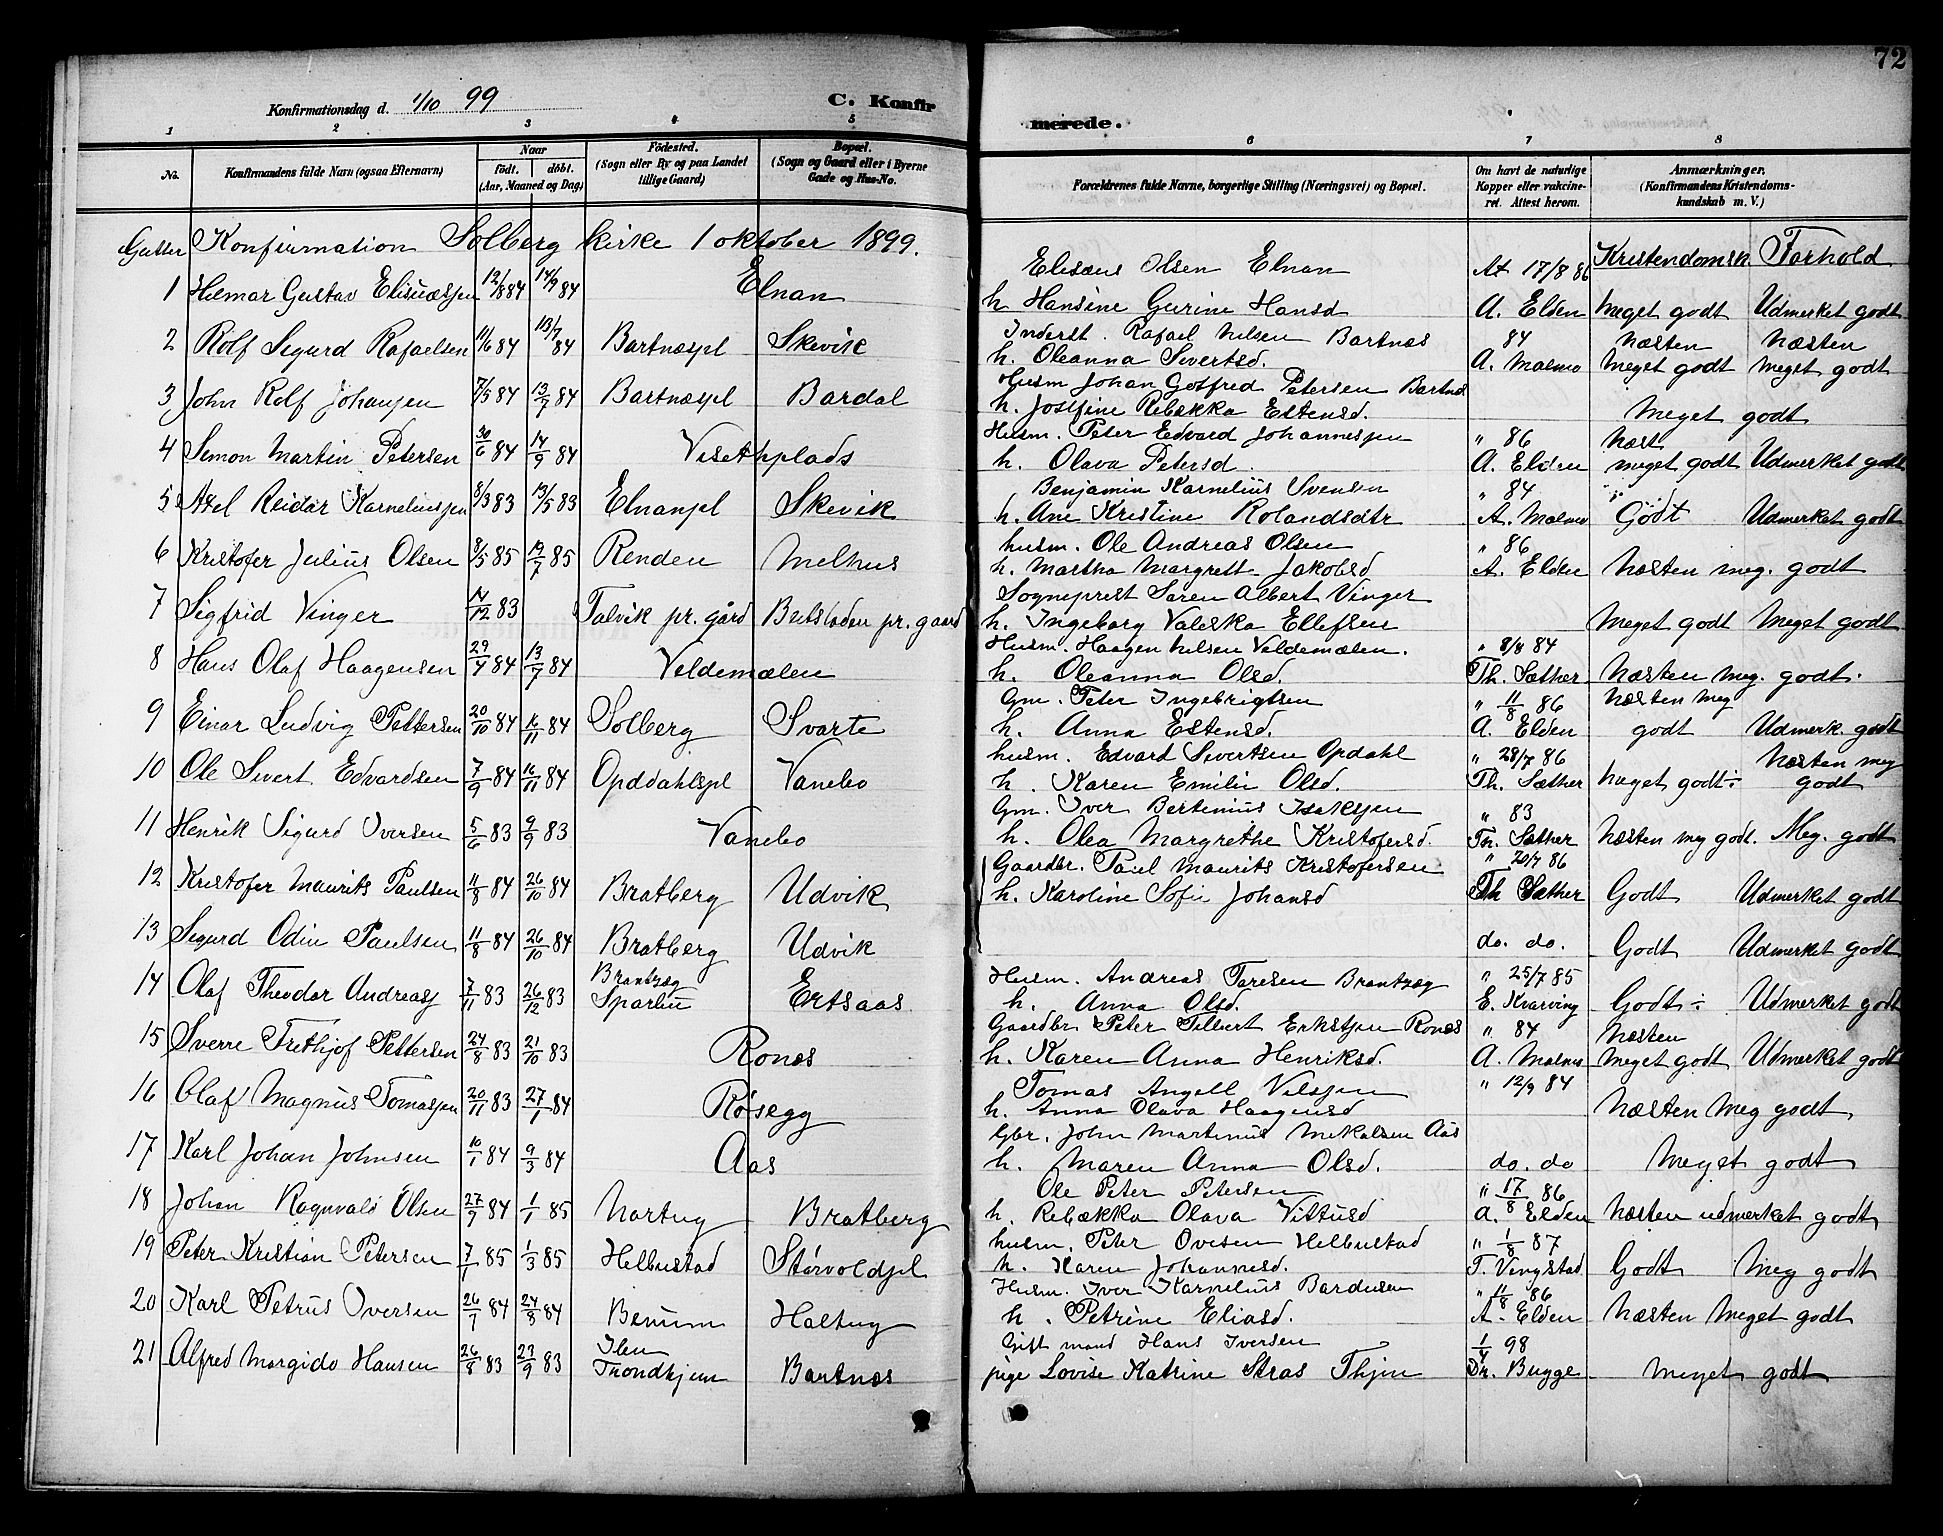 72
Konfirmationsdag d. 1/10 99
C. Konfirmerede.
1 2 3 4 5 6 7 8
No.
Konfirmandens fulde Navn (ogsaa Efternavn)
Naar
födt. döbt.
(Aar, Maaned og Dag)
Födested.
(Sogn eller By og paa Landet tillige Gaard)
Bopæl.
(Sogn og Gaard eller i Byerne Gade og Hus-No.
Forældrenes fulde Navne, borgerlige Stilling (Næringsvei) og Bopæl.
Om havt de naturlige Kopper eller vakcineret. Attest herom.
Anmærkninger.
(Konfirmandens Kristendomskundskab m. V.)
Gutter Konfirmation Solberg kirke 1 oktober 1899.
Kristendomsk. Forhold
1 Hilmar Gustav Elisæussen 12/8 84 14/9 84 Elnan Elisæus Olsen Elnan At 17/8 86
h. Hansine Gurine Hansd A. Elden Meget godt Udmerket godt
2 Rolf Sigurd Rafaelsen 11/6 84 13/7 84 Bartnæspl Skevik Inderst. Rafael Nilsen Bartnæs 84 Næsten Næsten
h. Oleanna Sivertsd. A. Malmo meget godt meget godt
3 John Rolf Johansen 7/5 84 13/7 84 Bartnæspl Bardal Husm Johan Gotfred Petersen Bartnæs
h. Josefine Rebækka Estensd. Meget godt
4 Simon Martin Petersen 30/6 84 14/9 84 Visethplads Husm. Peter Edvard Johannessen " 86 Næst
h. Olava Petersd. A. Elden meget godt Udmerket godt
5 Axel Reidar Karneliussen 8/3 83 13/5 83 Elnanpl Skevik Benjamin Karnelius Svensen " 84
h. Ane Kristine Rolandsdtr A. Malmo Godt Udmerket godt
6 Kristofer Julius Olsen 8/5 85 19/7 85 Renden Melhus husm. Ole Andreas Olsen " 86
h. Martha Margrett Jakobsd A. Elden Næsten meg. godt
7 Sigfrid Vinger 14/12 83 Talvik pr. gård Beitstaden pr. gaard Sogneprest Søren Albert Vinger
h. Ingeborg Valeska Ellefsen Meget godt Meget godt
8 Hans Olaf Haagensen 29/4 84 13/7 84 Veldemælen Husm. Haagen Nilsen Veldemælen. " 8/8 84
h. Oleanna Olsd. Th. Sæther Næsten meg. godt.
9 Einar Ludvig Pettersen 20/10 84 16/11 84 Solberg Svarte Gm. Peter Ingebrigtsen " 11/8 86 Næsten meg
h. Anna Estensd. A. Elden godt Udmerk. godt
10 Ole Sivert Edvardsen 7/9 84 16/11 84 Opddahlspl Vanebo husm. Edvard Sivertsen Opdahl " 28/7 86 Næsten meg
h. Karen Emilie Olsd. Th. Sæther meget godt÷ godt
11 Henrik Sigurd Iversen 5/6 83 9/9 83 Vanebo Gm. Iver Bertinius Isaksen " 83
h. Olea Margrethe Kristofersd. Th. Sæther Næsten meg godt. Meg. godt
12 Kristofer Maurits Paulsen 11/8 84 26/10 84 Bratberg Udvik Gaardbr. Paul Maurits Kristofersen " 20/7 86
h. Karoline Sofie Johansd Th Sæther Godt Udmerket godt
13 Sigurd Odin Paulsen 11/8 84 26/10 84 Bratberg Udvik do. do. Godt Udmerket godt
14 Olaf Theodor Andreass 7/11 83 26/12 83 Brantzæg Sparbu Ertsaas Husm. Andreas Toresen Brantzæg " 25/7 85
h. Anna Olsd. E. Kvarving Godt÷ Udmerket godt
15 Sverre Frithjof Pettersen 24/8 83 21/10 83 Ronæs Gaardbr. Peter Tilbert Erikssen Ronæs " 84 Næsten
h. Karen Anna Henriksd. A. Malmo meget godt Udmerket godt
16 Olaf Magnus Tomassen 20/11 83 27/1 84 Røsegg Tomas Angell Nilssen " 12/9 84
h. Anna Olava Haagensd Næsten meg godt
17 Karl Johan Johnsen 10/1 84 9/3 84 Aas Gbr. John Martinus Mikalsen Aas
h. Maren Anna Olsd. do. do Meget godt
18 Johan Ragnvald Olsen 27/9 84 1/1 85 Nartug Bratberg Ole Peter Petersen " 17/8 86
h. Rebækka Olava Vittusd A. Elden Næsten udmerket godt
19 Peter Kristian Petersen 7/1 85 1/3 85 Helbustad Størvoldpl husm. Peter Ovesen Helbustad " 1/8 87
h. Karen Johannesd. T. Vingstad Godt Meg godt
20 Karl Petrus Iversen 26/7 84 24/8 84 Benum Haltug Husm. Iver Karnelius Bardusen " 11/8 86
h. Petrine Eliasd. A. Elden Næsten Meget godt
21 Alfred Margido Hansen 26/8 83 23/9 83 Ilen Trondhjem Bartnæs Gift mand Hans Iversen 1/4 98
pige Lovise Katrine Stras Thjm Dr. Bugge Meget godt